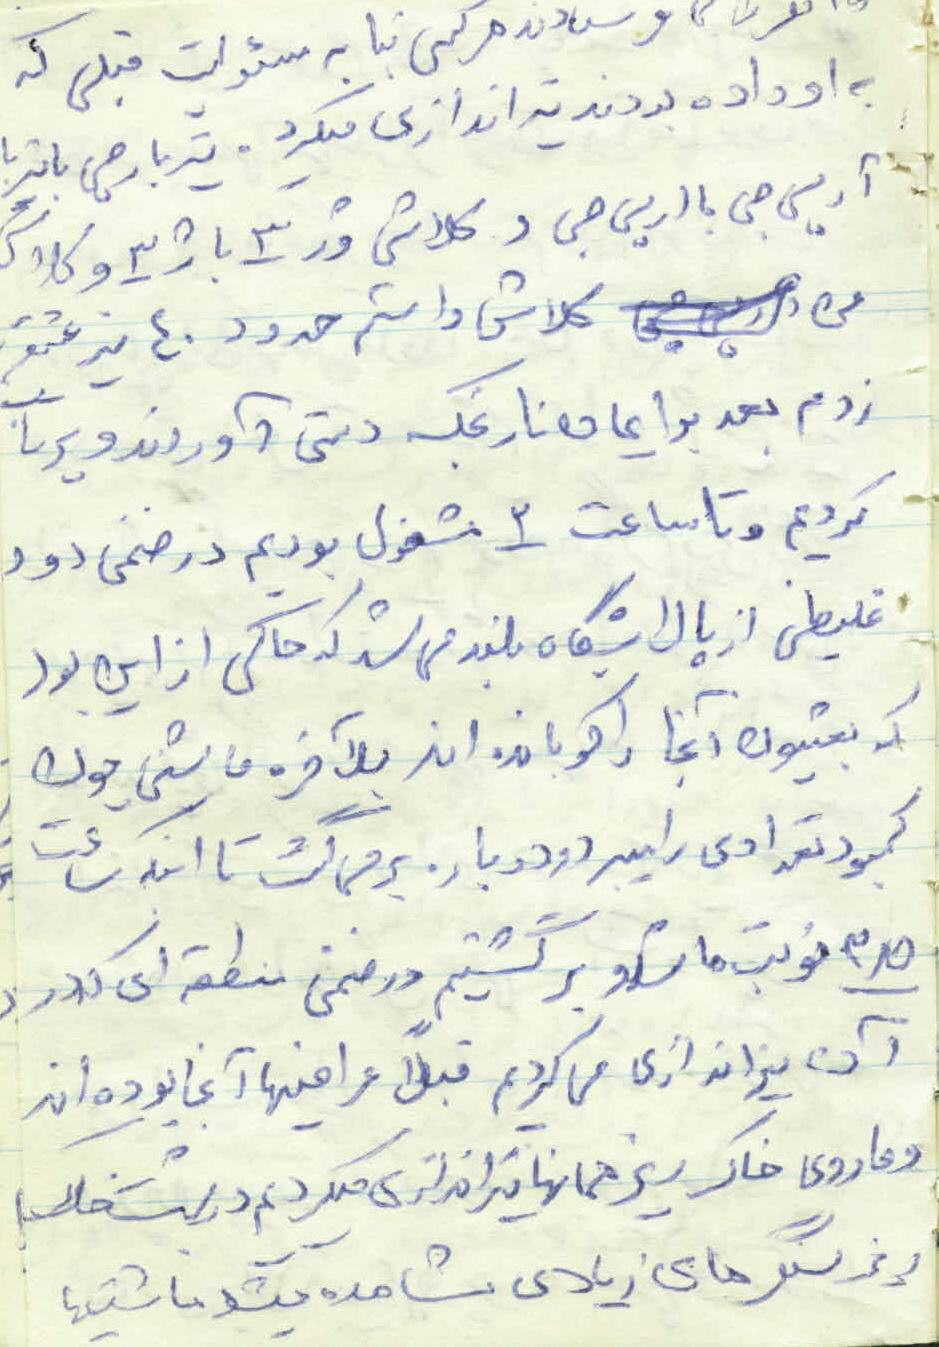 میدادند هر کسی بنا به مسئولیت قبلی که
به او داده بودند تیراندازی میکرد. تیربارچی با تیربا
آرپی جی با ارپی جی و کلاش و ژ ۳ با ژ ۳ و کلا
من کلاش داشتم حدود ۴۰ تیر
زدم بعد برایمان نارنجک دستی آوردند و پرتاب
کردیم و تا ساعت ۳ مشغول بودیم در ضمن دود
غلیظی از پالایشگاه بلند می شد که حاکی از این بود
که بعثیون آنجا را کوبانده اند بلآخره ماشین چون
کمبود تعدادی را میبرد و دوباره برمی گشت تا اینکه ساعت
۳/۵ نوبت ما شد و برگشتیم در ضمن منطقه ای که در
آن تیراندازی می کردیم قبلاً عراقیها آنجا بوده اند
و ما روی خاکریز همانها تیراندازی میکردیم در پشت خاک
ریز سنگرهای زیادی مشاهده میشد ماشینها